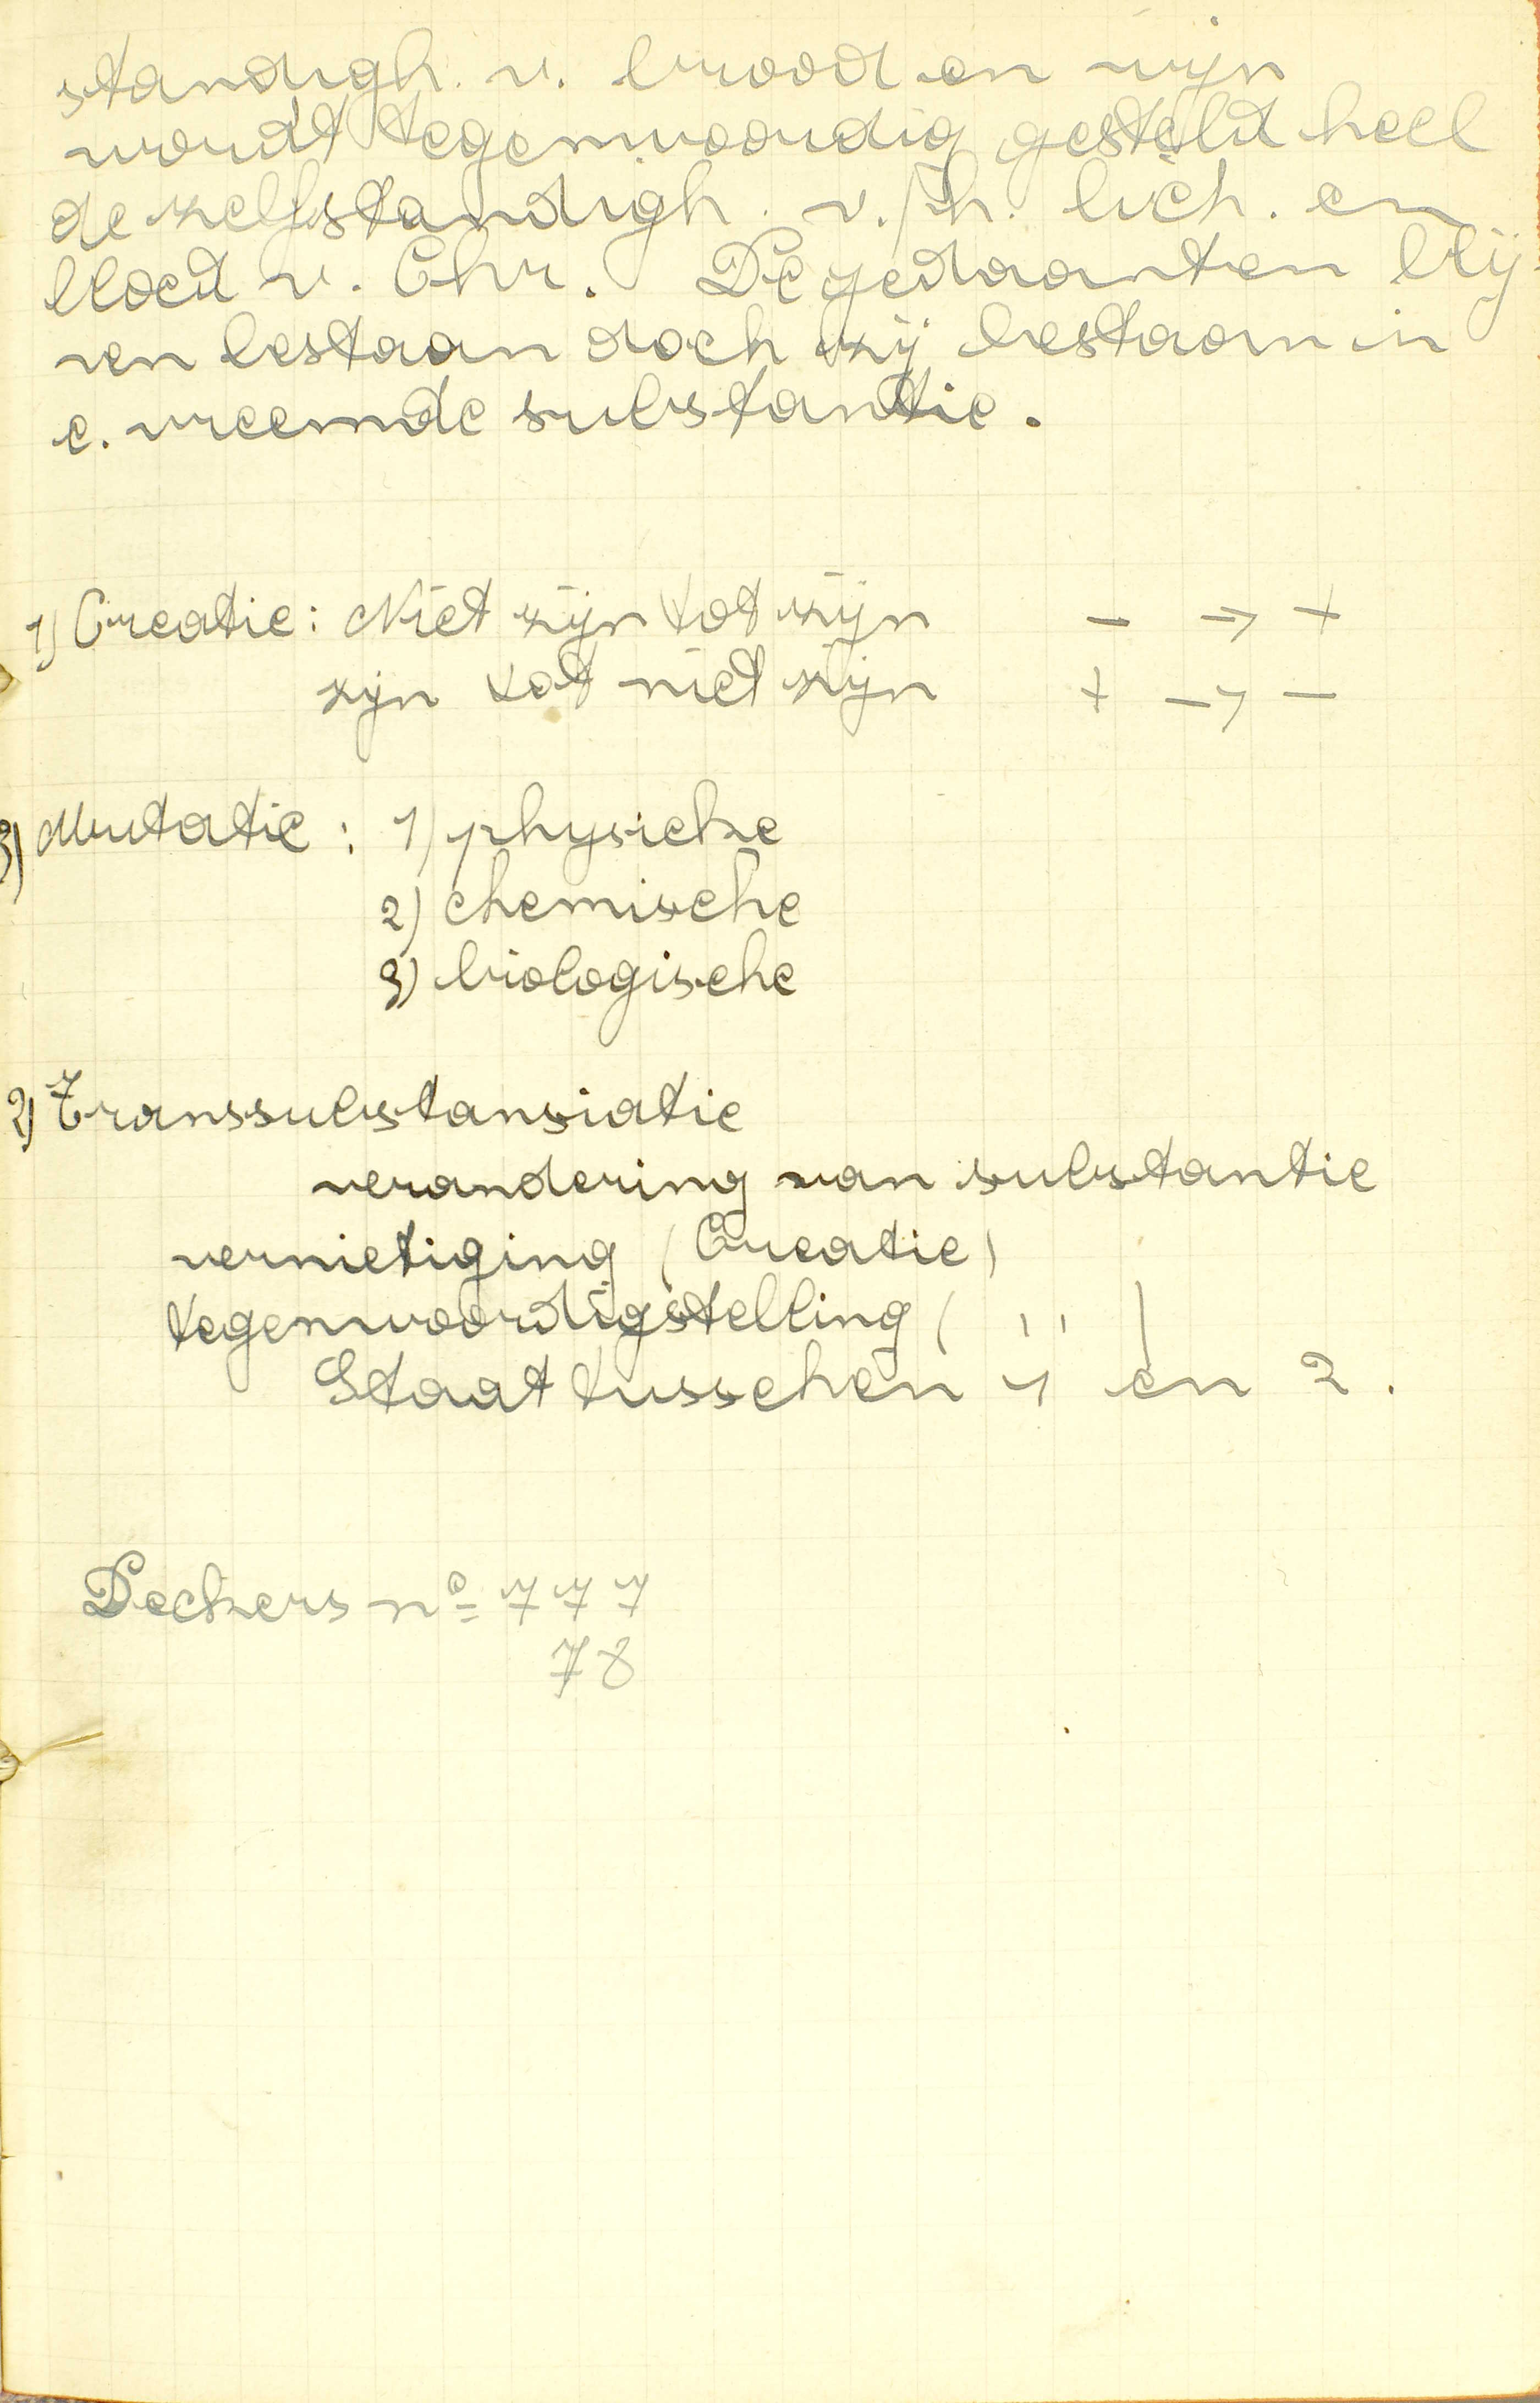 standigh. v. brood en wijn
wordt tegenwoordig gesteld heel
de zelfstandigh. v./h. lich. en
bloed v. Chr. De gedaanten blij
ven bestaan doch zij bestaan in
e. vreemde substantie.
1) Creatie: Niet zijn tot zijn – → +
zijn tot niet zijn + → –
3) Mutatie: 1) physieke
2) chemische
3) biologische
2) Transsubstansiatie
verandering van substantie
vernietiging (Creatie)
tegenwoordigstelling ( '' )
Staat tusschen 1 en 2.
Deckers nº 777
78